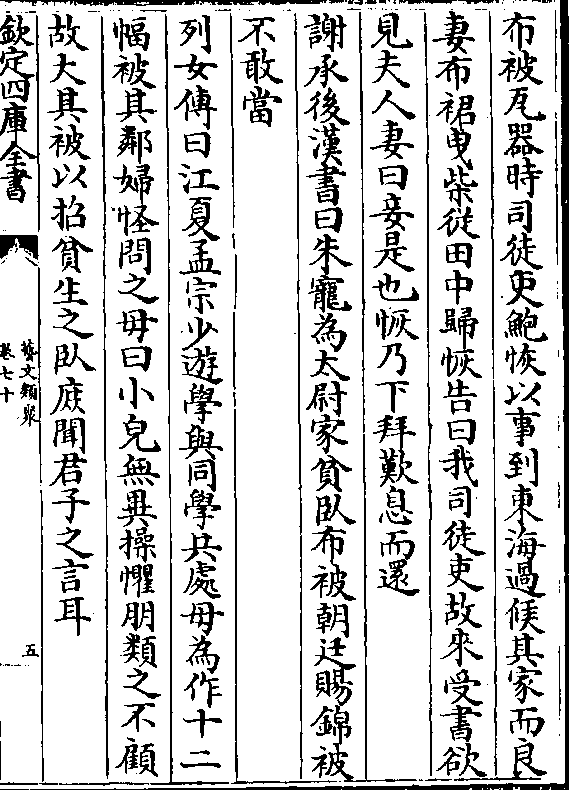 布被瓦器時司徒吏鮑恢以事到東海過候其家而良
妻布裙曳柴從田中歸恢告曰我司徒吏故來受書欲
見夫人妻曰妾是也恢乃下拜歎息而還
謝承後漢書曰朱寵為太尉家貧臥布被朝廷賜錦被
不敢當
列女傳曰江夏孟宗少遊學與同學共處母為作十二
幅被其鄰婦怪問之母曰小兒無異操懼朋類之不顧
故大其被以招貧生之臥庶聞君子之言耳
欽定四庫全書
藝文類聚
卷七十
五